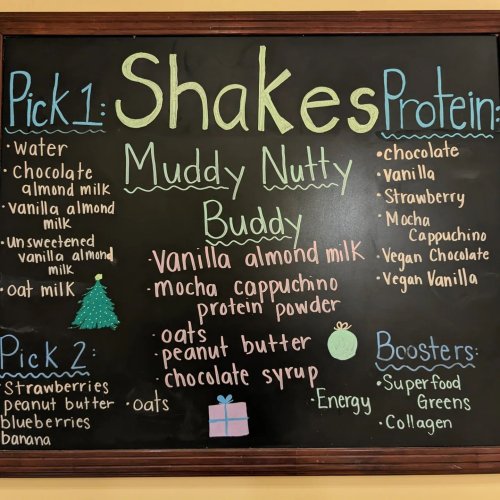 Shakes
Pick 1:
• Water
• Chocolate
almond milk
• Vanilla almond
milk
• unsweetened
vanilla almond
milk
• oat milk
Pick 2:
Strawberries
peanut butter • oats
blueberries
banana
Muddy Nutty
Buddy
• Vanilla almond milk
• mocha cappuchino
protein powder
• oats
• peanut butter
• chocolate syrup
Protein:
• chocolate
• Vanilla
• Strawberry
• Mocha
Cappuchino
• Vegan Chocolate
• Vegan Vanilla
Boosters:
• Energy
• Superfood
Greens
• Collagen